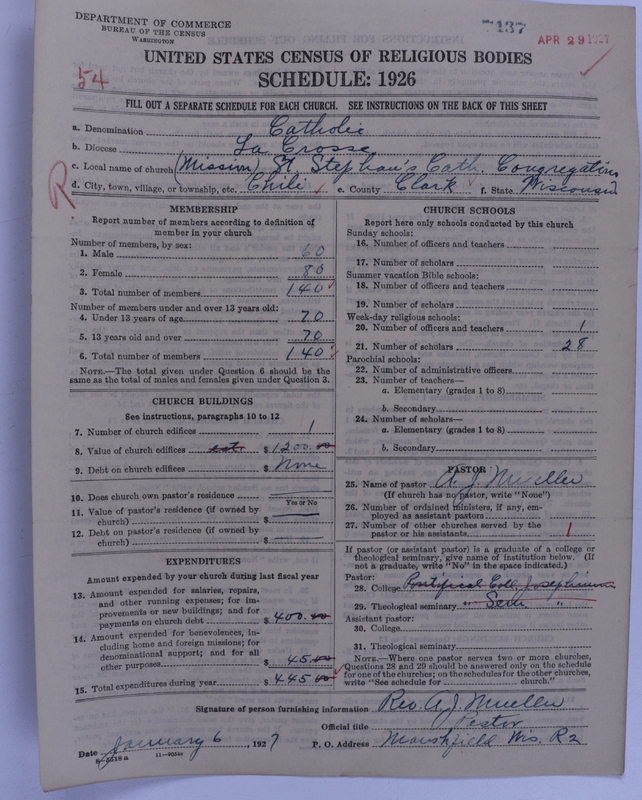 DEPARTMENT OF COMMERCE
BUREAU OF THE CENSUS
WASHINGTON
7137
APR 29 1927
UNITED STATES CENSUS OF RELIGIOUS BODIES
SCHEDULE: 1926
54
FILL OUT A SEPARATE SCHEDULE FOR EACH CHURCH. SEE INSTRUCTIONS ON THE BACK OF THIS SHEET
a. Denomination Catholic
b. Diocese La Crosse
c. Local name of church (Mission) St. Stephan's Cath. Congregation
d. City, town, village, or township, etc. Chili e. County Clark f. State Wisconsin
R
MEMBERSHIP
Report number of members according to definition of
member in your church
Number of members, by sex:
1. Male 60
2. Female 80
3. Total number of members 140
Number of members under and over 13 years old:
4. Under 13 years of age 70
5. 13 years old and over 70
6. Total number of members 140
NOTE.—The total given under Question 6 should be the
same as the total of males and females given under Question 3.
CHURCH BUILDINGS
See instructions, paragraphs 10 to 12
7. Number of church edifices 1
8. Value of church edifices est. $ 1200.00
9. Debt on church edifices $ None
10. Does church own pastor's residence
Yes or No
11. Value of pastor's residence (if owned by
church) $
12. Debt on pastor's residence (if owned by
church) $
EXPENDITURES
Amount expended by your church during last fiscal year
13. Amount expended for salaries, repairs,
and other running expenses; for im-
provements or new buildings; and for
payments on church debt $ 400.00
14. Amount expended for benevolences, in-
cluding home and foreign missions; for
denominational support; and for all
other purposes $ 45.00
15. Total expenditures during year $ 445.00
CHURCH SCHOOLS
Report here only schools conducted by this church
Sunday schools:
16. Number of officers and teachers
17. Number of scholars
Summer vacation Bible schools:
18. Number of officers and teachers
19. Number of scholars
Week-day religious schools:
20. Number of officers and teachers 1
21. Number of scholars 28
Parochial schools:
22. Number of administrative officers
23. Number of teachers—
a. Elementary (grades 1 to 8)
b. Secondary
24. Number of scholars—
a. Elementary (grades 1 to 8)
b. Secondary
PASTOR
25. Name of pastor A. J. Mueller
(If church has no pastor, write "None")
26. Number of ordained ministers, if any, em-
ployed as assistant pastors
27. Number of other churches served by the
pastor or his assistants 1
If pastor (or assistant pastor) is a graduate of a college or
theological seminary, give name of institution below. (If
not a graduate, write "No" in the space indicated.)
Pastor:
28. College Pontifical Coll. Josephinum
29. Theological seminary " Sem. "
Assistant pastor:
30. College
31. Theological seminary
NOTE.—Where one pastor serves two or more churches,
Questions 28 and 29 should be answered only on the schedule
for one of the churches; on the schedules for the other churches,
write "See schedule for church."
Signature of person furnishing information Rev. A. J. Mueller
Official title Pastor
Date January 6, 1927 P. O. Address Marshfield Wis. R2
8-5518a 11-9304